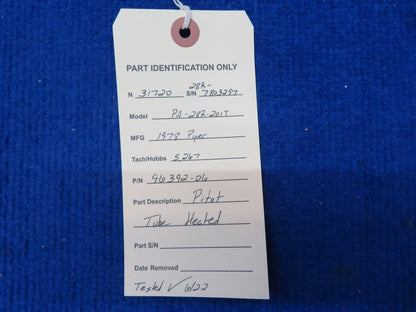 PART IDENTIFICATION ONLY
28R-
N 31720 S/N 7803297
Model PA-28R-201T
MFG 1978 Piper
Tach/Hobbs 5,267
P/N 96392-06
Part Description Pitot
Tube Heated
Part S/N
Date Removed
Tested ✓ 6/22